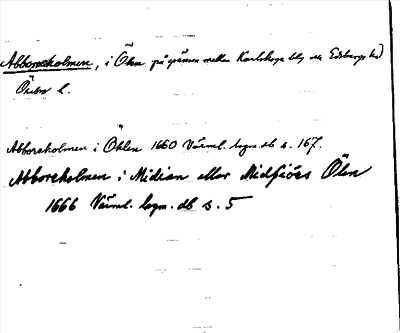 Abboreholmen, i Ölen på gränsen mellan Karlskoga blg och Edsbergs hd
Örebro l.
Abboreholmen i Öhlen 1660 Värml. lagm. db s. 167.
Abboreholmen i Midian eller Midfiöes Ölen
1666 Värml. lagm. db s. 5